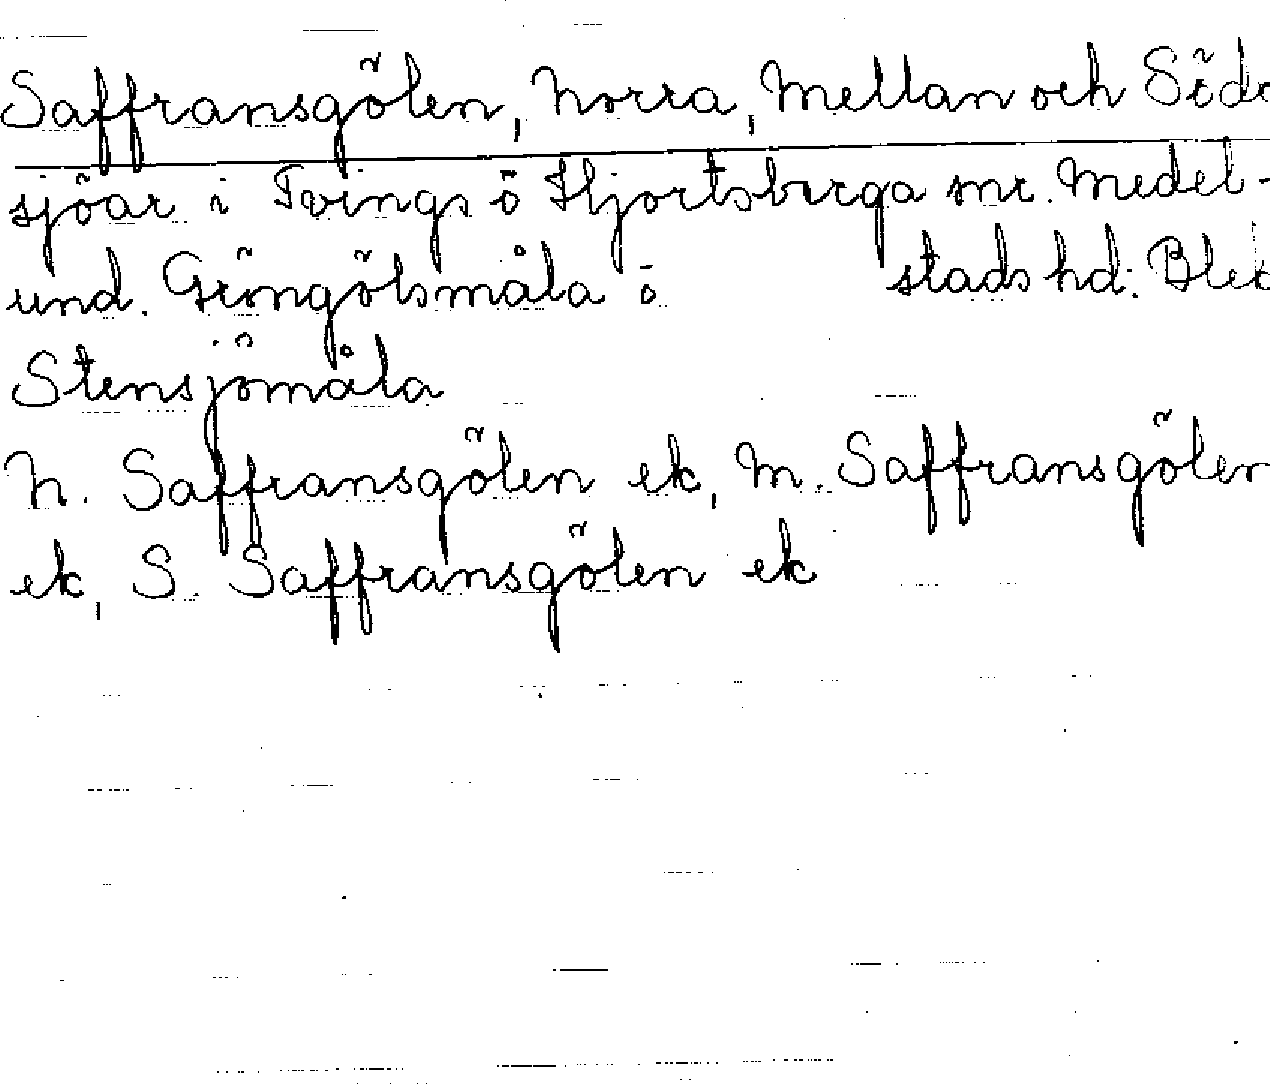 Saffransgölen, Norra, Mellan och Söd
sjöar i Tvings o Hjortsberga snr. Medel-
und. Göngölsmåla o stads hd. Blek
Stensjömåla
N. Saffransgölen ek, M. Saffransgölen
ek, S. Saffransgölen ek